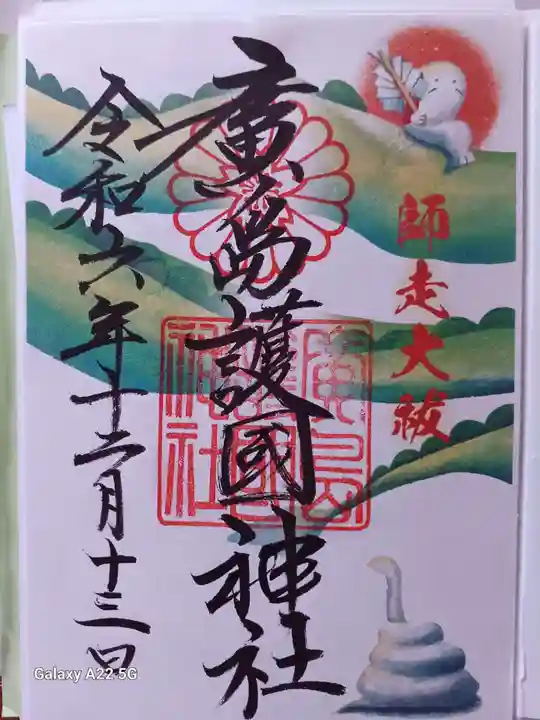 師走大祓
廣島護國神社
廣島
護國
神社
令和六年十二月十三日
Galaxy A22 5G